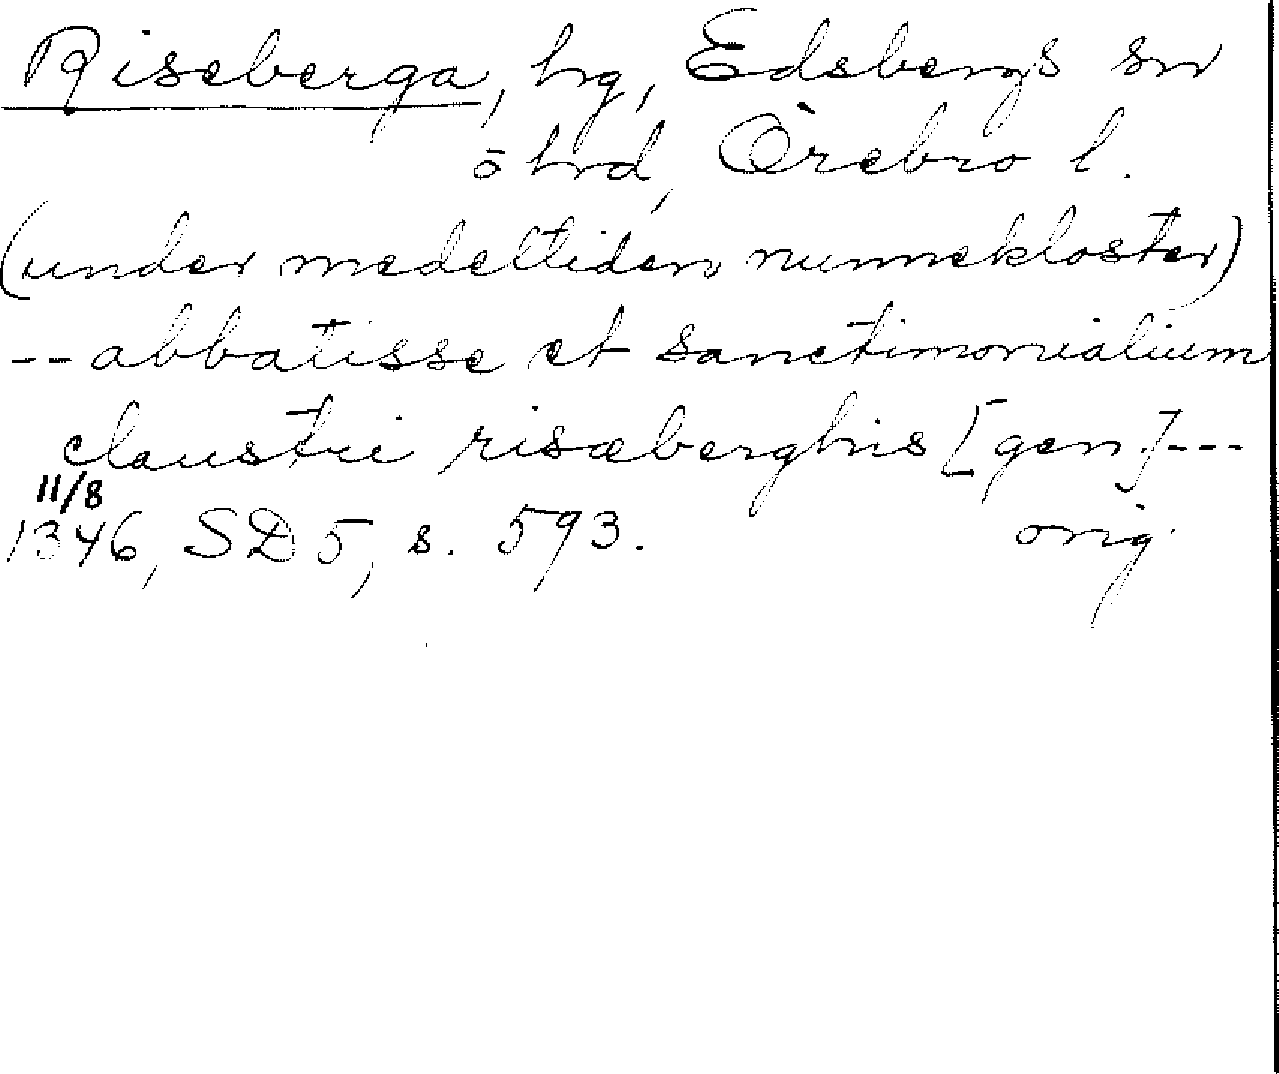 Riseberga, hg, Edsbergs sn
o hrd, Örebro l.
(under medeltiden nunnekloster)
-- abbatisse et sanctimonialium
claustri risæberghis [gen.] ---
11/8
1346, SD 5, s. 593. orig.